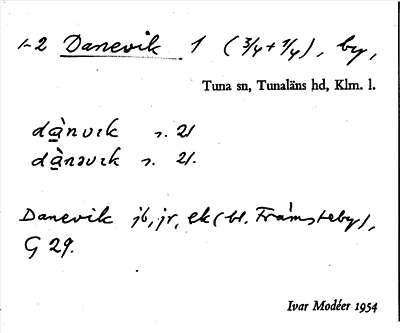 1-2 Danevik 1 (3/4+1/4), by,
Tuna sn, Tunaläns hd, Klm. l.
dànvık s. 21
dànəvık s. 21.
Danevik jb, jr, ek (bl. Främsteby),
G 29.
Ivar Modéer 1954